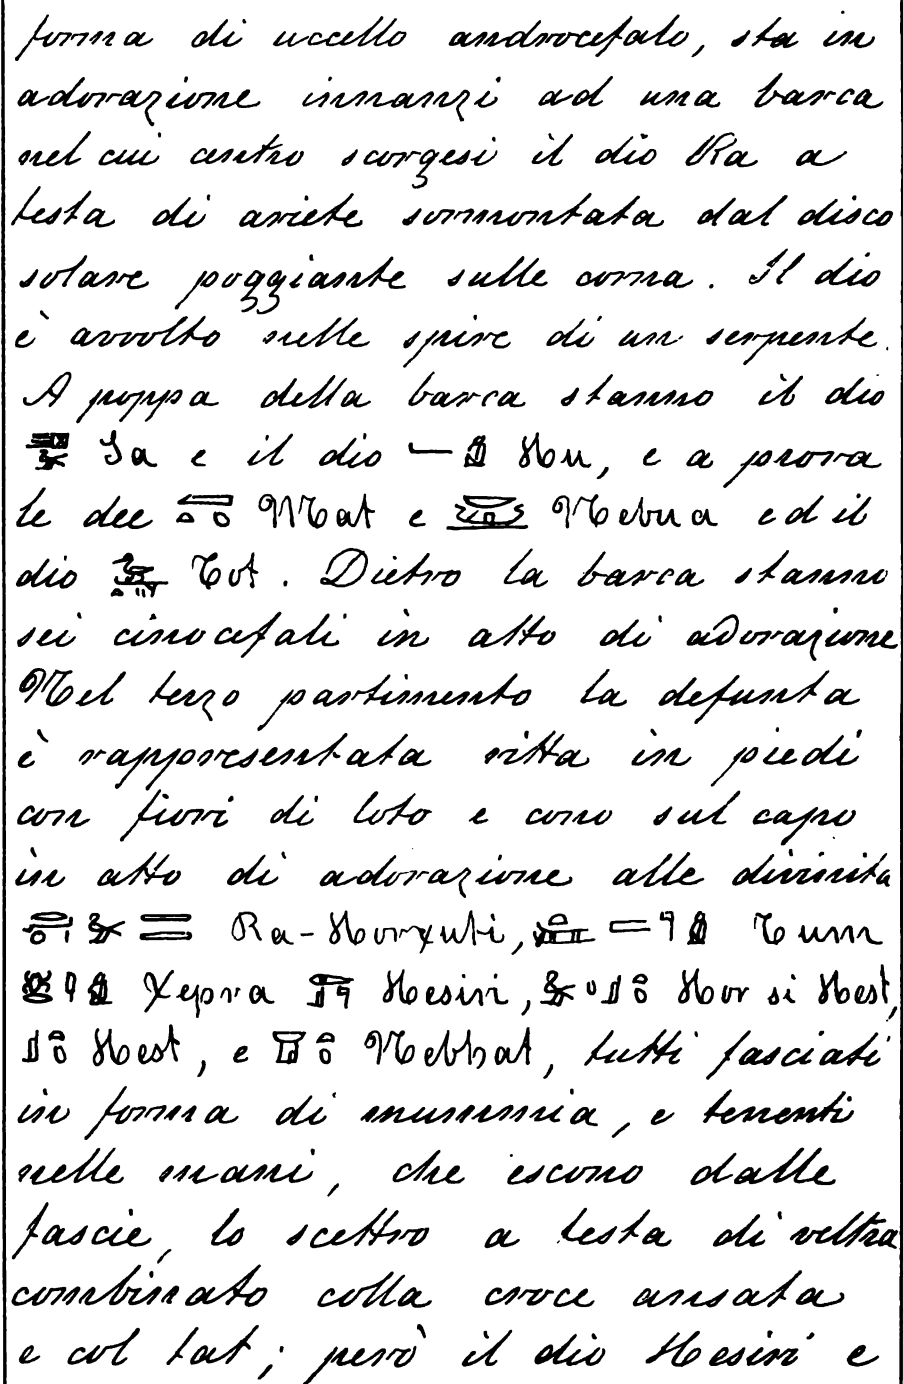 forma di uccello androcefalo, sta in
adorazione innanzi ad una barca
nel cui centro scorgesi il dio Ra a
testa di ariete sormontata dal disco
solare poggiante sulle corna. Il dio
è avvolto nelle spire di un serpente.
A poppa della barca stanno il dio
Sa e il dio Hu, e a prora
le dee Mat e Nebua ed il
dio Tot. Dietro la barca stanno
sei cinocefali in atto di adorazione
Nel terzo partimento la defunta
è rappresentata ritta in piedi
con fiori di loto e cono sul capo
in atto di adorazione alle divinità
Ra-Horχuti, Tum
χepra Hesiri, Hor si Hest,
Hest, e Nebhat, tutti fasciati
in forma di mummia, e tenenti
nelle mani, che escono dalle
fascie, lo scettro a testa di veltra
combinato colla croce ansata
e col tat; però il dio Hesiri e